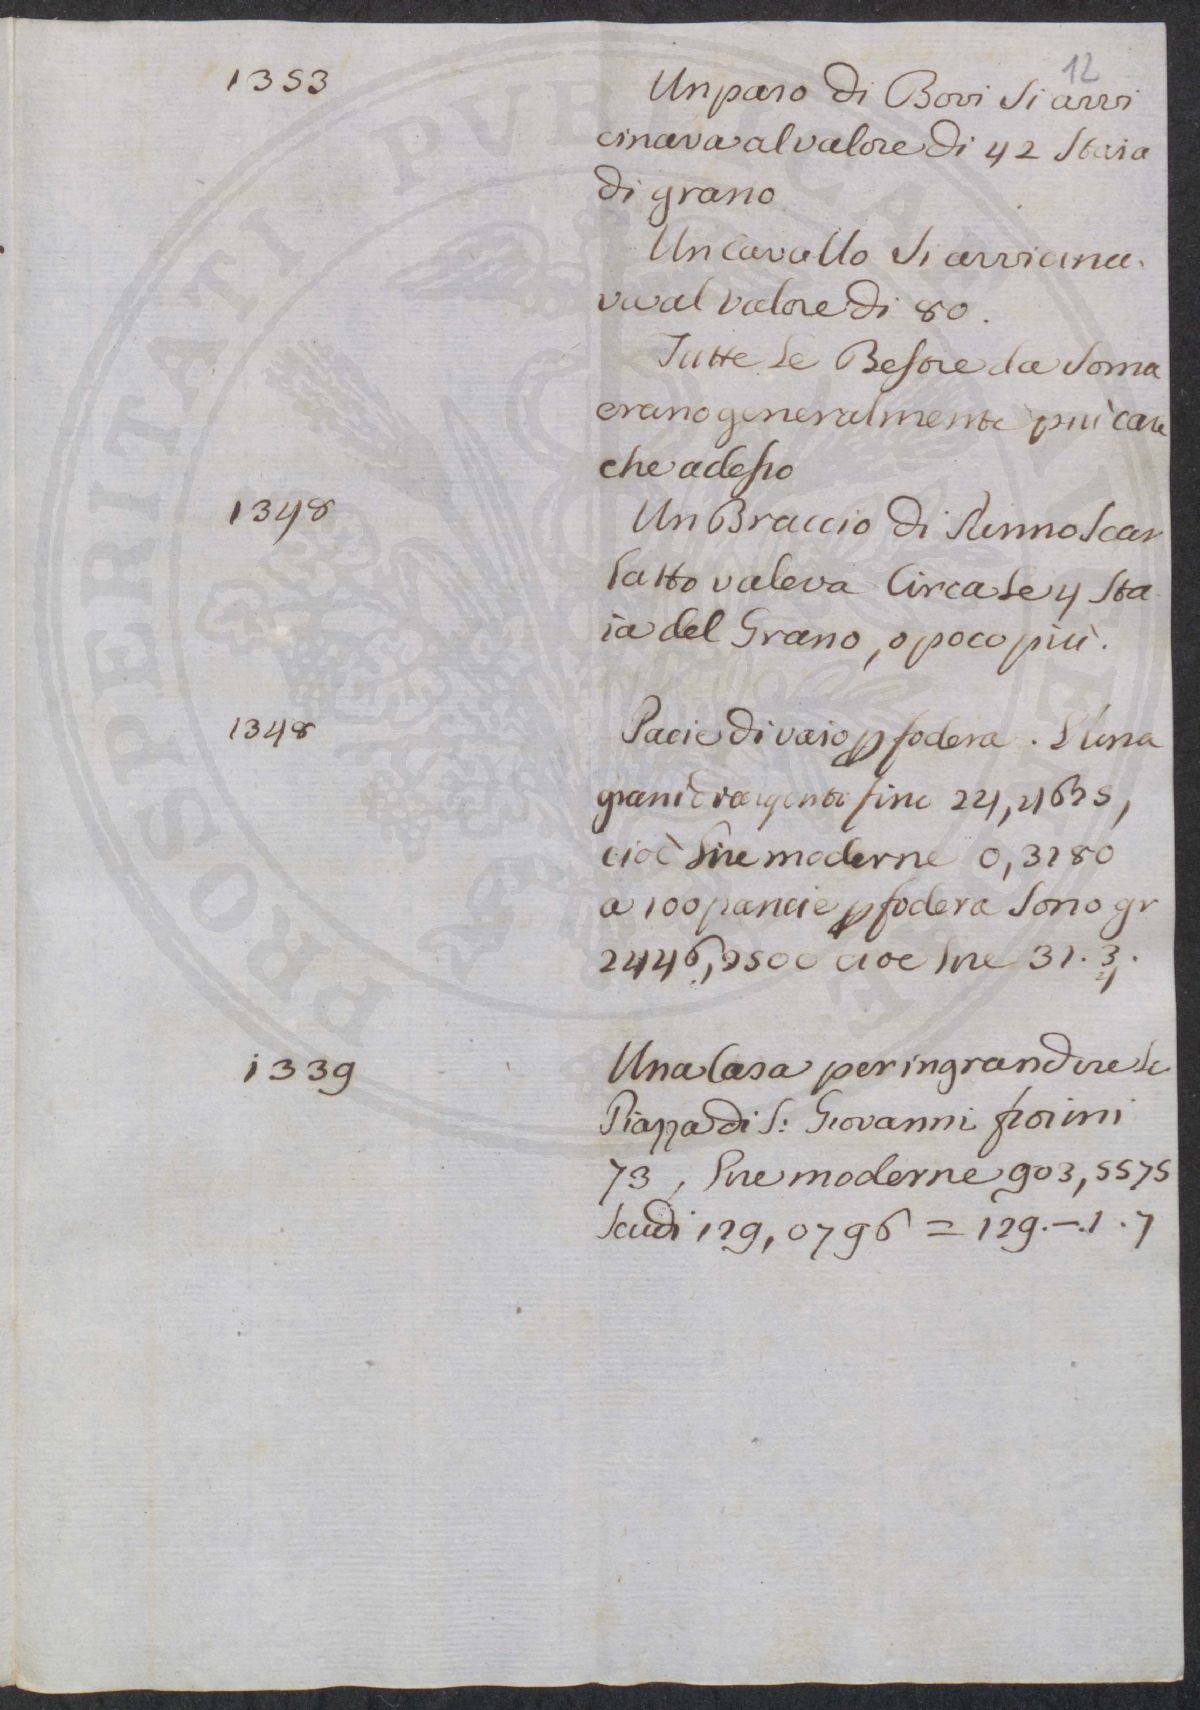 12
1353 Un paro di Bovi si avvi
cinava al valore di 42 Staia
di grano
Un Cavallo si avvicina-
va al valore di 80.
Tutte le Bestie da Soma
erano generalmente più care
che adesso
1348 Un Braccio di Panno Scar
latto valeva Circa le 4 Sta
ia del Grano, o poco più.
1348 Pacie di vaio p fodera. L'una
grani d'argento fine 24,4625,
cioè lire moderne 0,3280
a 100 pancie p fodera sono gr
2446,2500 cioe lire 32.3.
1339 Una Casa per ingrandire la
Piazza di S: Giovanni fiorini
73, lire moderne 903,5575
Scudi 129,0796 = 129.-.1.7
PROSPERITATI PVBLICAE